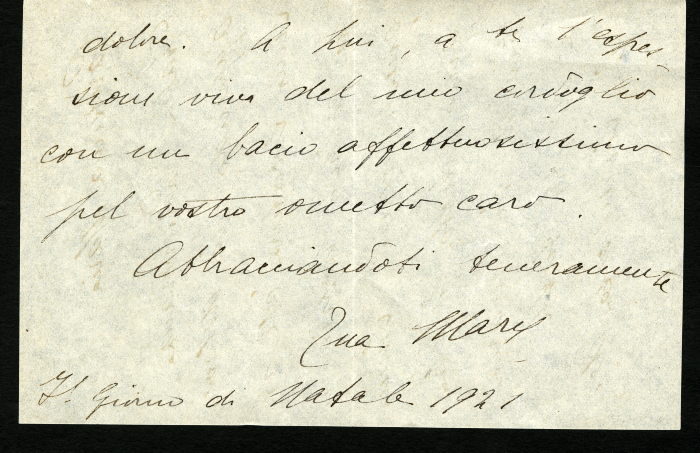 dolore. A Lui, a te l'espres-
sione viva del mio cordoglio
con un bacio affettuosissimo
pel vostro ometto caro.
Abbracciandoti teneramente
Tua Mary
Il Giorno di Natale 1921